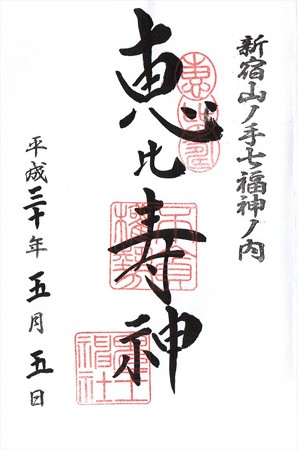 新宿山ノ手七福神ノ内
恵比寿神
平成三十年五月五日